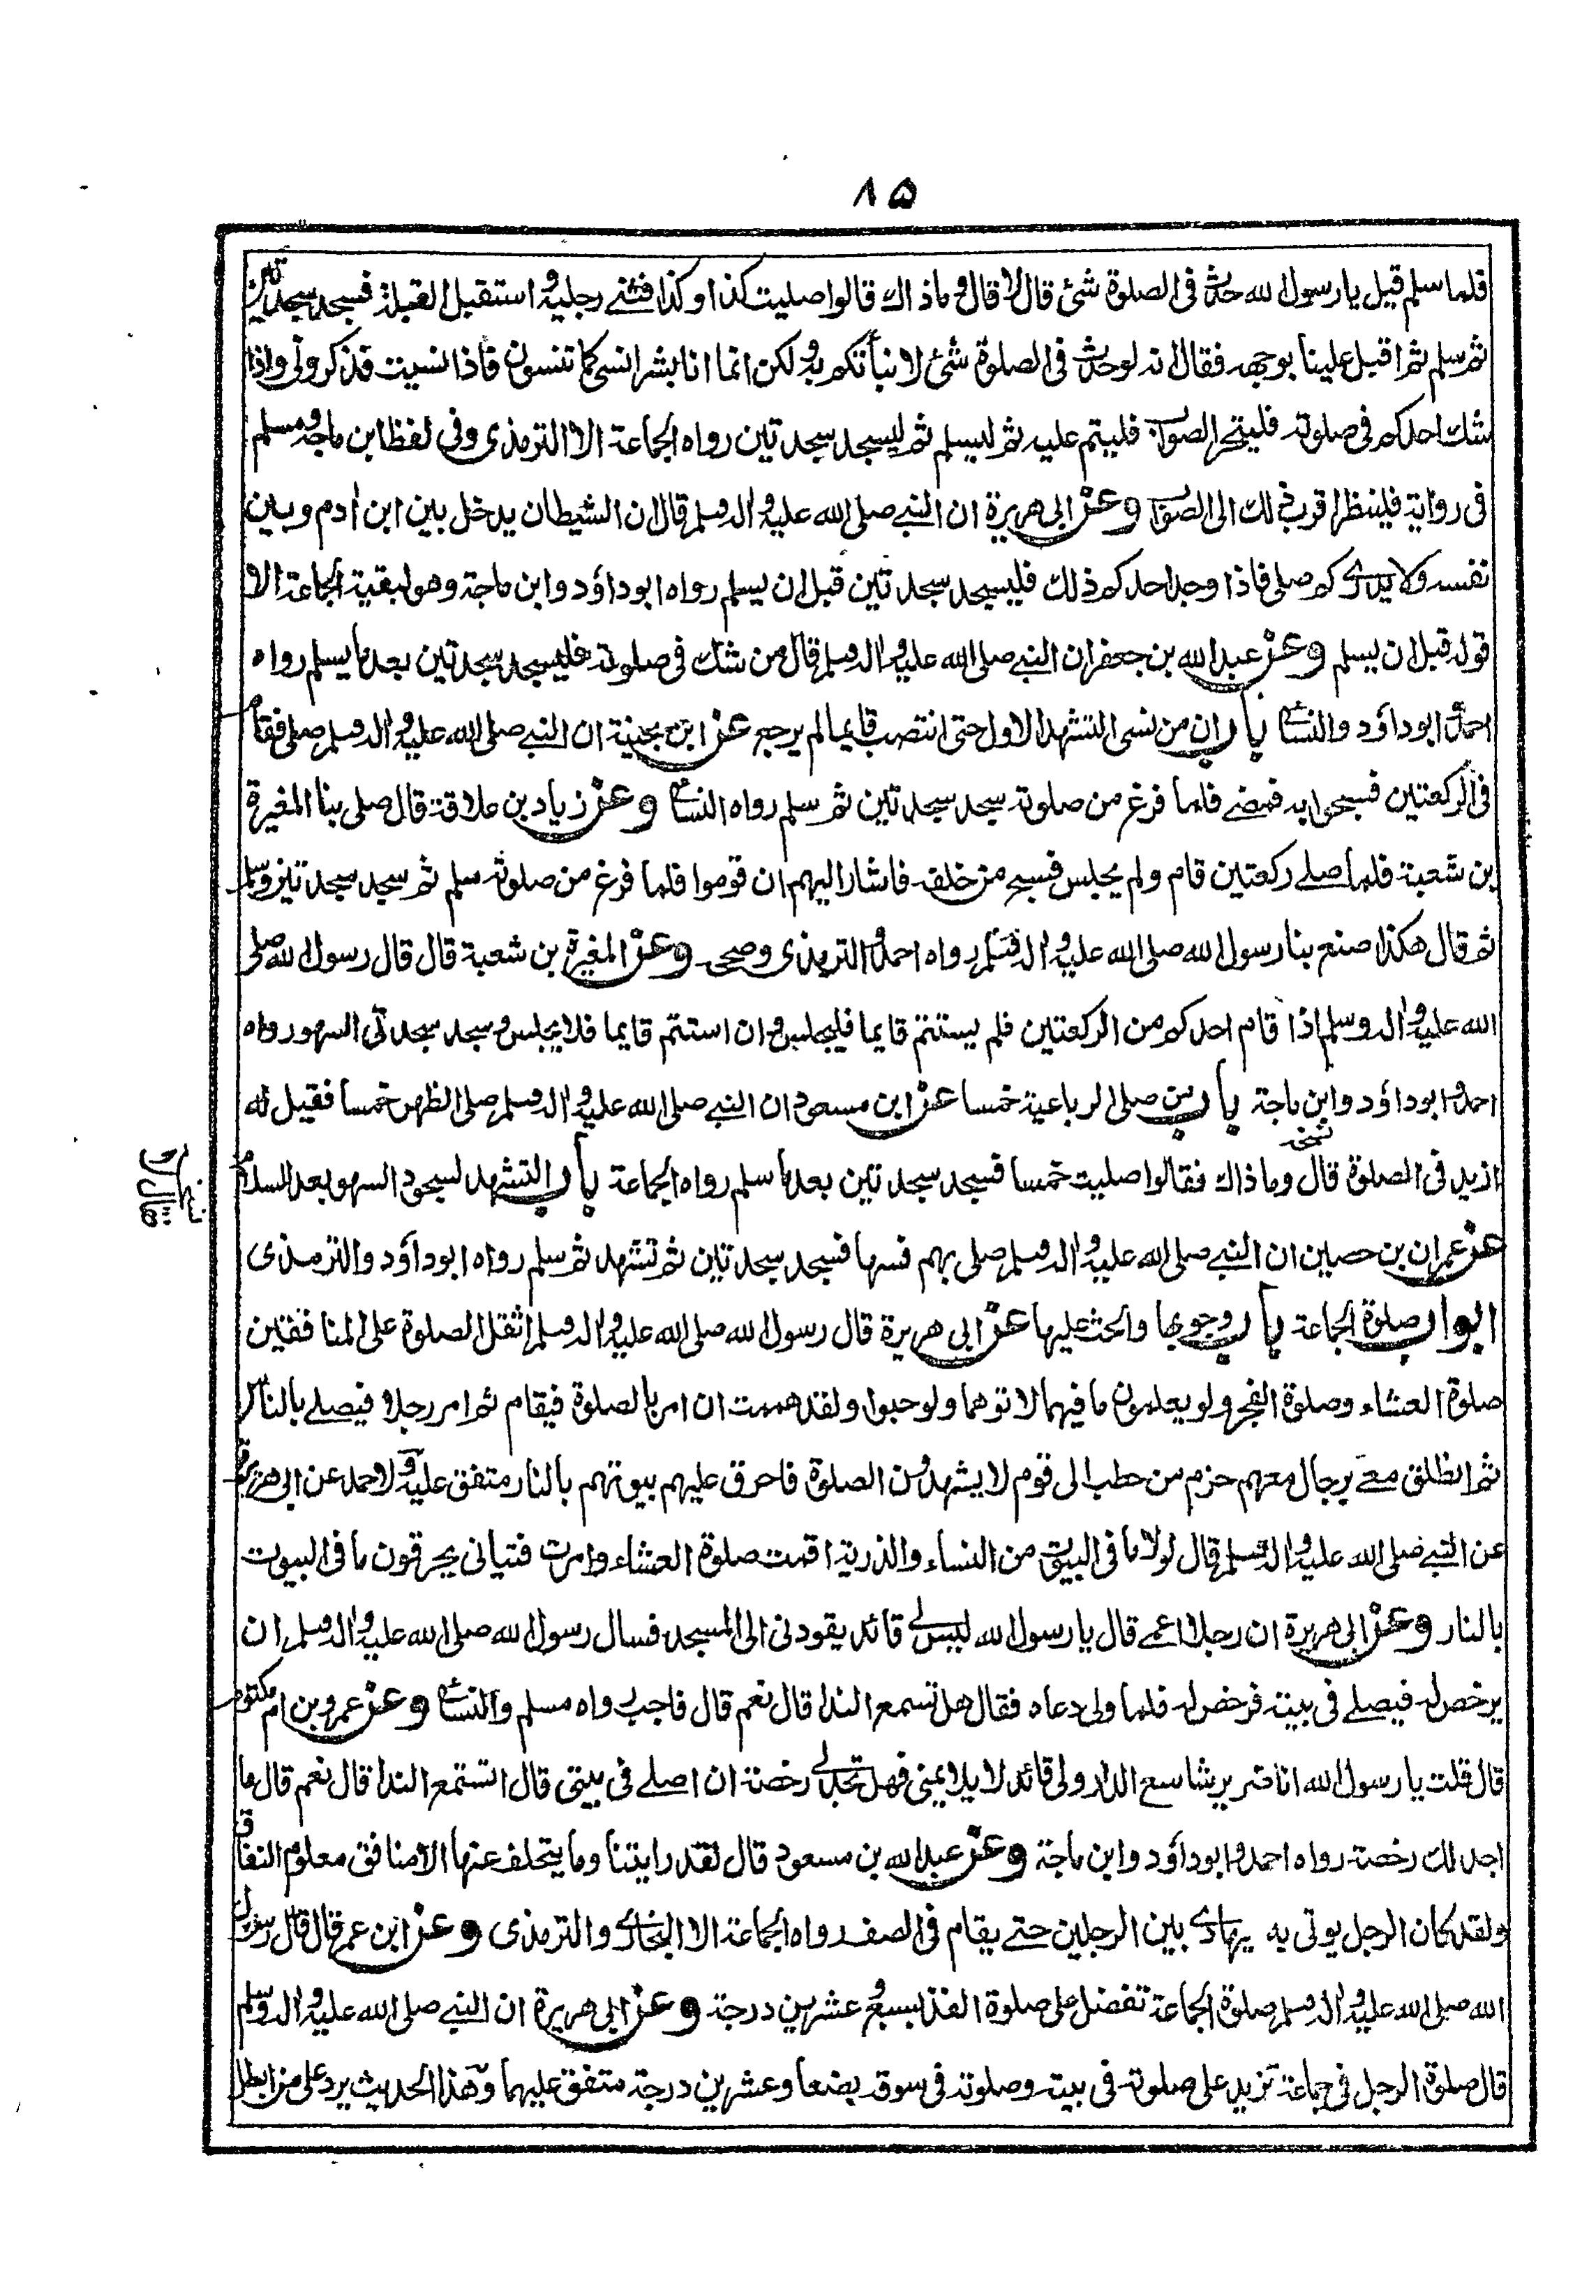 ٨٥
فلما سلم قيل يا رسول الله حدث فى الصلوة شئ قال لا قال وما ذاك قالوا صليت كذا وكذا فثنى رجليه واستقبل القبلة فسجد سجدتين
ثم سلم ثم اقبل علينا بوجهه فقال انه لو حدث فى الصلوة شئ لانبأتكم به ولكن انما انا بشر انسى كما تنسون فاذا نسيت فذكرونى واذا
شك احدكم فى صلوته فليتحر الصواب فليتم عليه ثم ليسلم ثم ليسجد سجدتين رواه الجماعة الا الترمذى وفى لفظ ابن ماجة ومسلم
فى رواية فلينظر اقرب ذلك الى الصواب وعن ابى هريرة ان النبى صلى الله عليه واله وسلم قال ان الشيطان يدخل بين ابن ادم وبين
نفسه ولا يدرى كم صلى فاذا وجد احدكم ذلك فليسجد سجدتين قبل ان يسلم رواه ابوداؤد وابن ماجة وهو لبقية الجماعة الا
قوله قبل ان يسلم وعن عبدالله بن جعفر ان النبى صلى الله عليه واله وسلم قال من شك فى صلوته فليسجد سجدتين بعد ما يسلم رواه
احمد وابوداؤد والنسائى باب ان من نسى التشهد الاول حتى انتصب قايما لم يرجع عن ابن بحينة ان النبى صلى الله عليه واله وسلم صلى فقام
فى الركعتين فسبحوا به فمضى فلما فرغ من صلوته سجد سجدتين ثم سلم رواه النسائى وعن زياد بن علاقة قال صلى بنا المغيرة
بن شعبة فلما صلى ركعتين قام ولم يجلس فسبح من خلفه فاشار اليهم ان قوموا فلما فرغ من صلوته سلم ثم سجد سجدتين وسلم
ثم قال هكذا صنع بنا رسول الله صلى الله عليه واله وسلم رواه احمد والترمذى وصححه وعن المغيرة بن شعبة قال قال رسول الله صلى
الله عليه واله وسلم اذا قام احدكم من الركعتين فلم يستتم قايما فليجلس وان استتم قايما فلا يجلس وسجد سجدتى السهو رواه
احمد وابوداؤد وابن ماجة باب من صلى الرباعية خمسا عن ابن مسعود ان النبى صلى الله عليه واله وسلم صلى الظهر خمسا فقيل له
ازيد فى الصلوة قال وما ذاك فقالوا صليت خمسا فسجد سجدتين بعد ما سلم رواه الجماعة باب التشهد لسجود السهو بعد السلام
عن عمران بن حصين ان النبى صلى الله عليه واله وسلم صلى بهم فسها فسجد سجدتين ثم تشهد ثم سلم رواه ابوداؤد والترمذى
ابواب صلوة الجماعة باب وجوبها والحث عليها عن ابى هريرة قال رسول الله صلى الله عليه واله وسلم اثقل الصلوة على المنافقين
صلوة العشاء وصلوة الفجر ولو يعلمون ما فيهما لاتوهما ولو حبوا ولقد هممت ان امر بالصلوة فيقام ثم امر رجلا فيصلى بالناس
ثم انطلق معى برجال معهم حزم من حطب الى قوم لا يشهدون الصلوة فاحرق عليهم بيوتهم بالنار متفق عليه ولاحمد عن ابى هريرة
عن النبى صلى الله عليه واله وسلم قال لولا ما فى البيوت من النساء والذرية اقمت صلوة العشاء وامرت فتيانى يحرقون ما فى البيوت
بالنار وعن ابى هريرة ان رجلا اعمى قال يا رسول الله ليس لى قائد يقودنى الى المسجد فسال رسول الله صلى الله عليه واله وسلم ان
يرخص له فيصلى فى بيته فرخص له فلما ولى دعاه فقال هل تسمع الندا قال نعم قال فاجب رواه مسلم والنسائى وعن عمرو بن ام مكتوم
قال قلت يا رسول الله انا ضرير شاسع الدار ولى قائد لا يلايمنى فهل تجد لى رخصة ان اصلى فى بيتى قال اتسمع الندا قال نعم قال ما
اجد لك رخصة رواه احمد وابوداؤد وابن ماجة وعن عبدالله بن مسعود قال لقد رايتنا وما يتخلف عنها الا منافق معلوم النفاق
ولقد كان الرجل يوتى به يهادى بين الرجلين حتى يقام فى الصف رواه الجماعة الا البخارى والترمذى وعن ابن عمر قال قال رسول
الله صلى الله عليه واله وسلم صلوة الجماعة تفضل على صلوة الفذ بسبع وعشرين درجة وعن ابى هريرة ان النبى صلى الله عليه واله وسلم
قال صلوة الرجل فى جماعة تزيد على صلوته فى بيته وصلوته فى سوقه بضعا وعشرين درجة متفق عليهما وهذا الحديث يرد على من ابطل